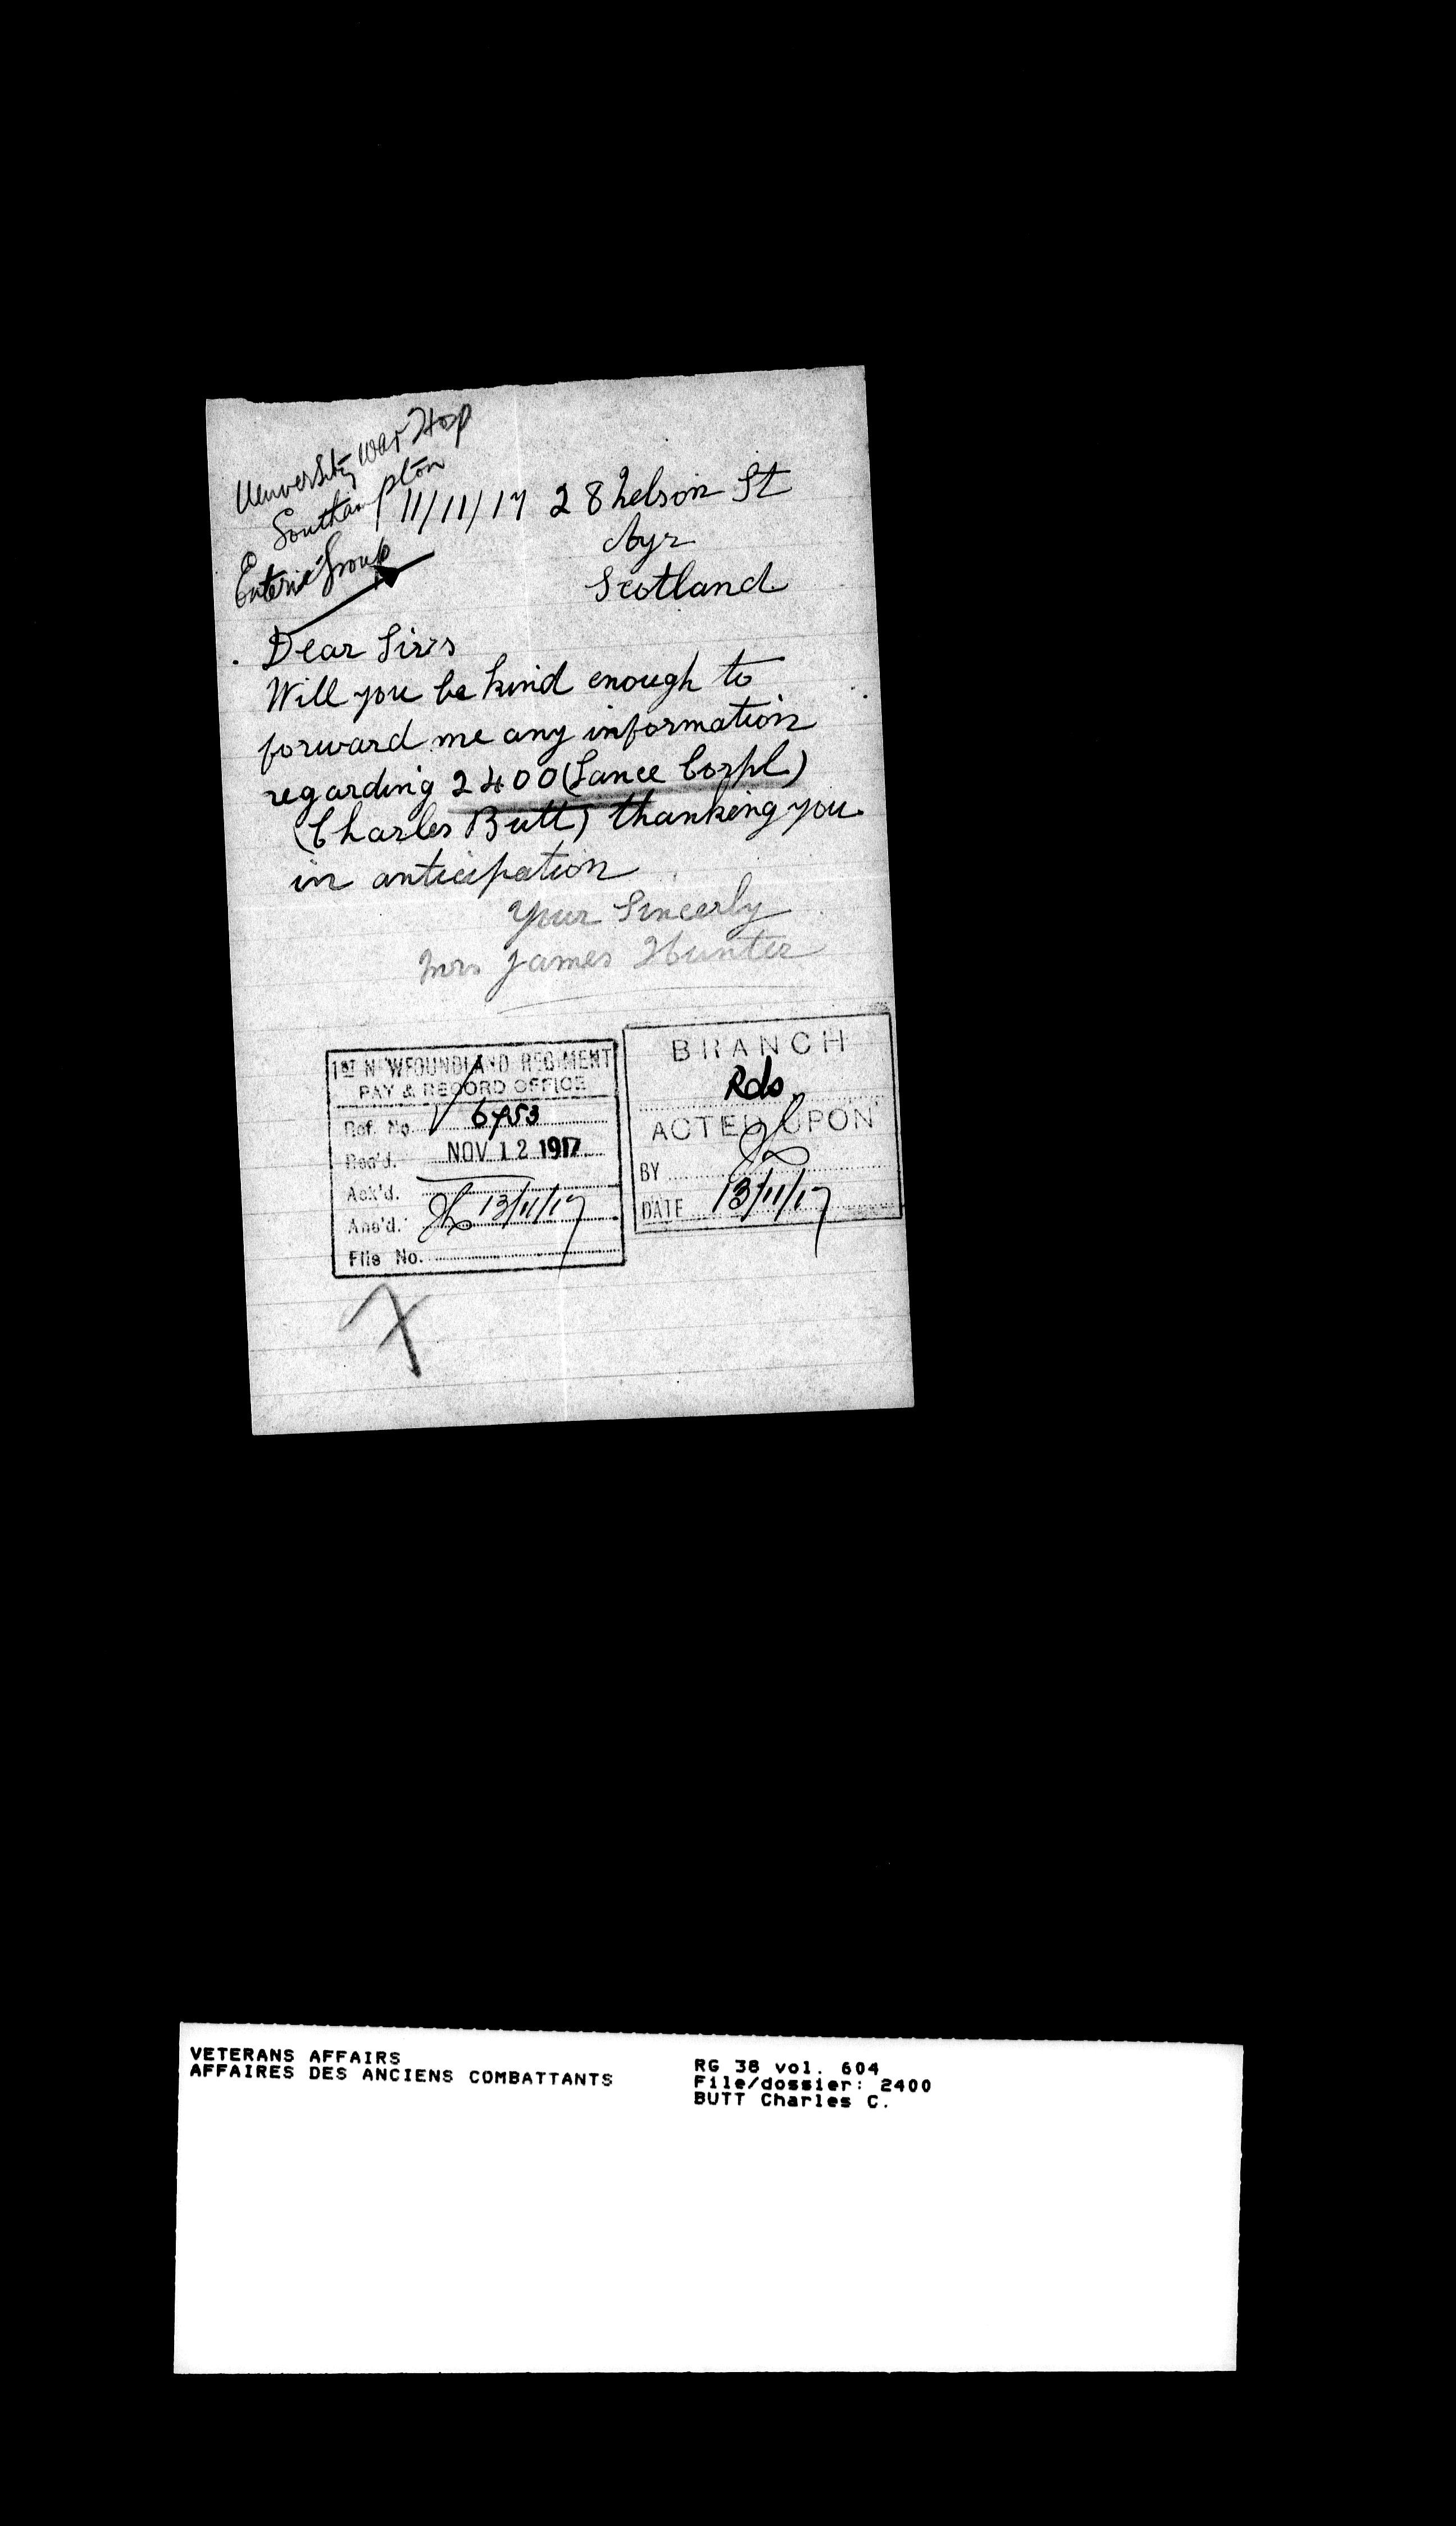 University War Hosp
Southampton
Enteric Group
11/11/17 28 Nelson St
Ayr
Scotland
Dear Sirs
Will you be kind enough to
forward me any information
regarding 2400 (Lance Corpl)
(Charles Butt) thanking you
in anticipation
Your Sincerly
Mrs James Hunter
1ST NEWFOUNDLAND REGIMENT
PAY & RECORD OFFICE
Ref. No. 6953
Rec'd. NOV 12 1917
Ack'd.
Ans'd. 13/11/17
File No.
BRANCH
Rds
ACTED UPON
BY
DATE 13/11/17
VETERANS AFFAIRS
AFFAIRES DES ANCIENS COMBATTANTS
RG 38 vol. 604
File/dossier: 2400
BUTT Charles C.